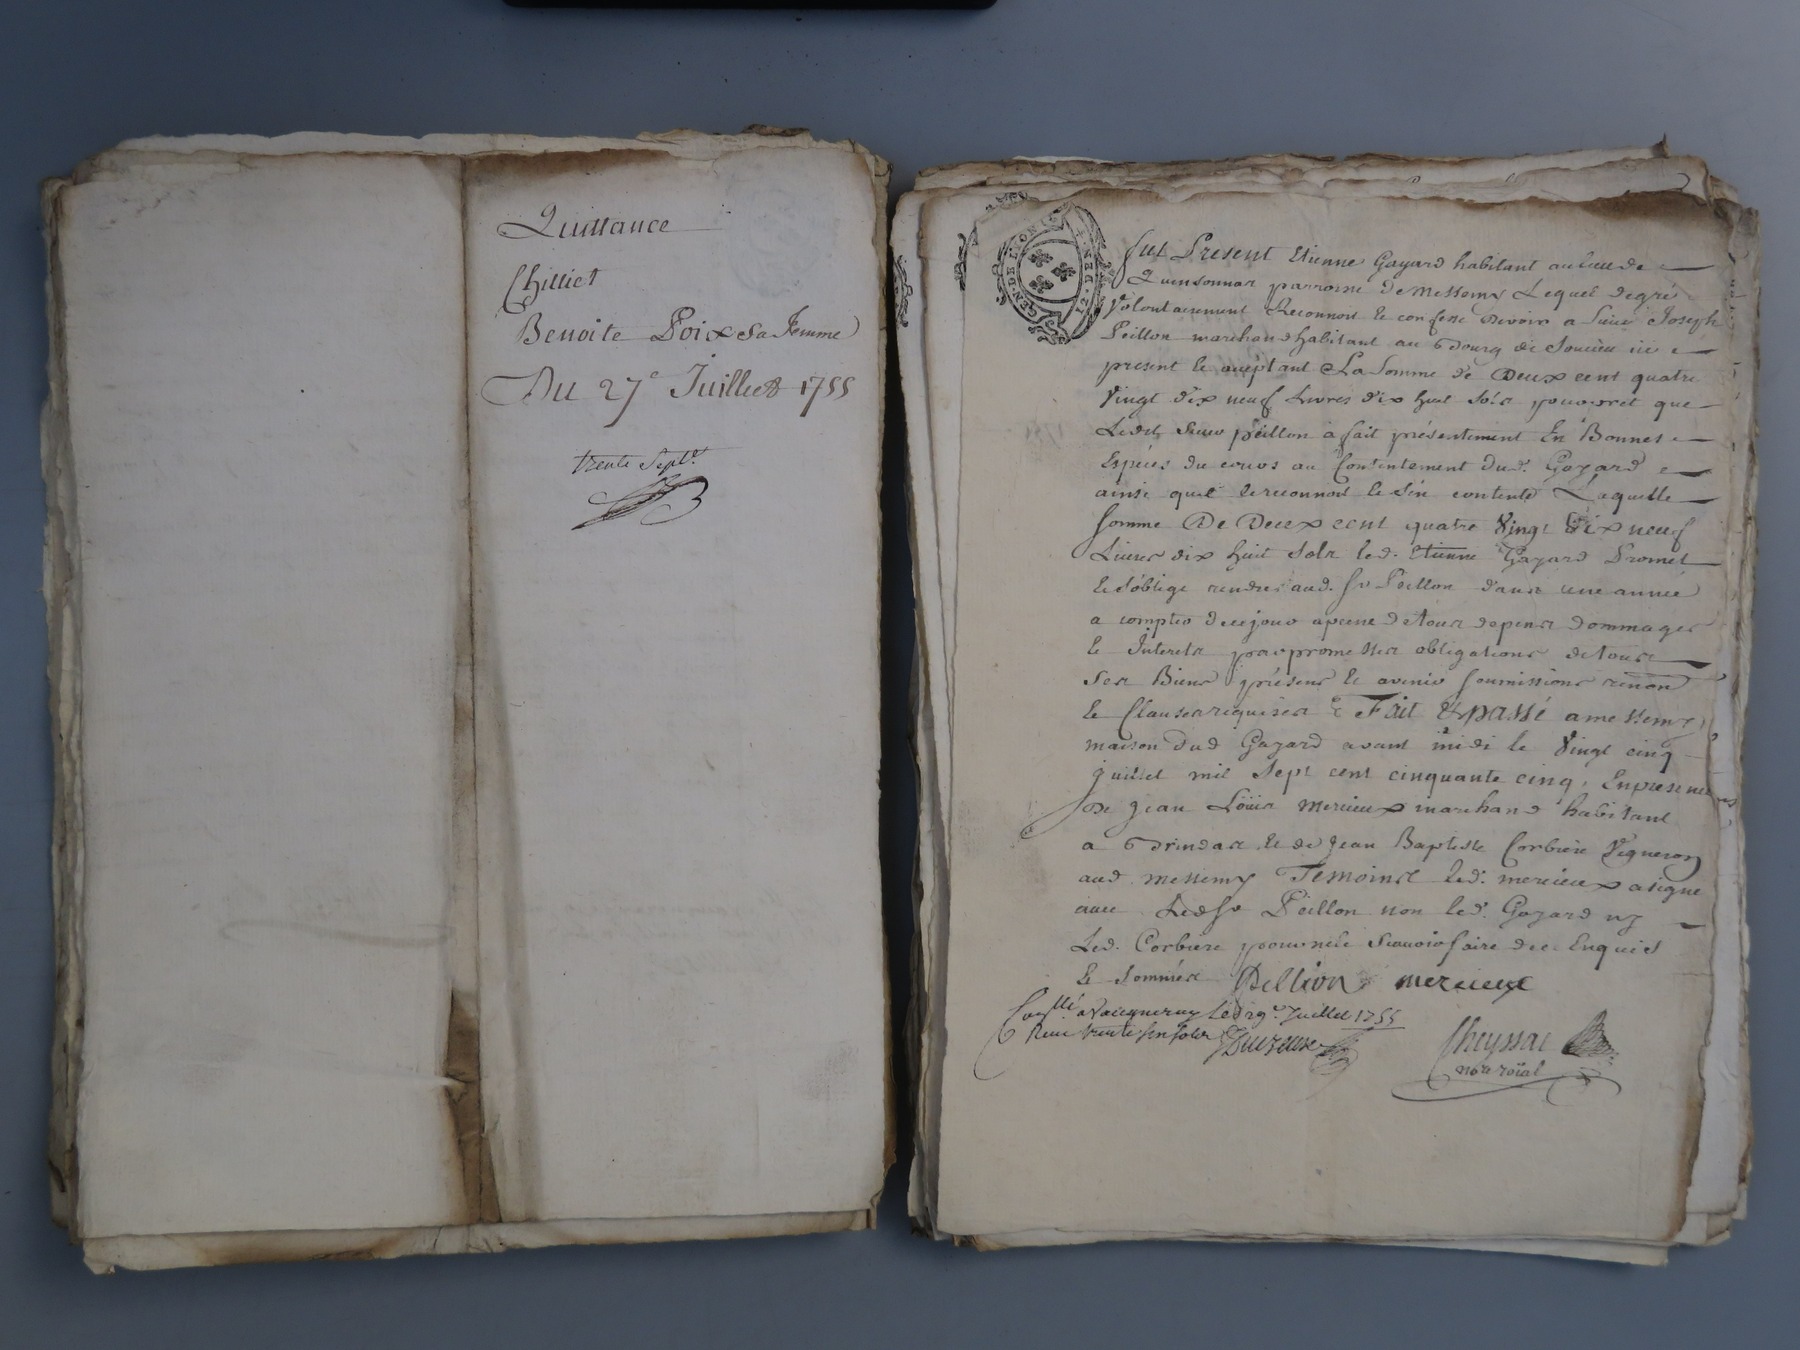 Quittance
Chilliet
Benoite Poix Sa femme
Du 27e Juillet 1755
trente Sept.
GEN. DE LYON
2. DEN.
fut Present Etienne Gayard habitant au lieu de
Quinsonnas parroisse de Messemy Lequel de gré
Volontairement Reconnoit et confesse devoir a Sieur Joseph
Peillon marchand habitant au Bourg de Soucieu icy
present et acceptant La Somme de Deux cent quatre
Vingt dix neuf Livres dix huit Sols que
Ledit Sieur peillon a fait présentement En Bonnes
Espèces du cours au Contentement dud. Gayard
ainsi quil le reconnoit content Laquelle
Somme De Deux cent quatre Vingt Dix neuf
Livres dix huit Sols led. Etienne Gayard Promet
et s'oblige rendre aud. Sr Peillon dans une année
a compter de ce jour a peine de tous depens dommages
et Interets par promesses obligations de tous
Ses Biens présens et avenir Soumissions renon
et Clauses requises Fait & passé a messemy
maison dud Gayard avant midi le Vingt cinq
juillet mil Sept cent cinquante cinq, En presence
de jean Loüis mercieux marchand habitant
a Brindas et de Jean Baptiste Corbiere Vigneron
aud. messemy Temoins led. mercieux a signé
avec Led Sr Peillon non led. Gayard ny
Led. Corbiere pour ne le Scavoir faire de ce Enquis
et Sommés Pellion mercieux
Conllé a Vaugneray Le 29e Juillet 1755
Reçu trente Sols
Cheyssac
nore roïal